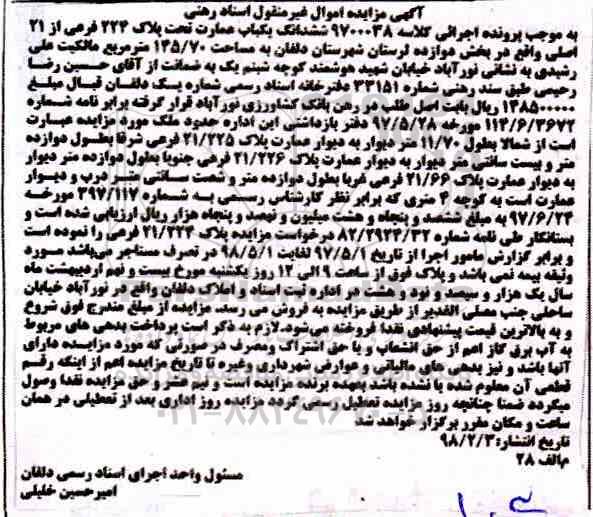 آگهی مزایده اموال غیرمنقول اسناد رهنی
به موجب پرونده اجرائی کلاسه ۹۷۰۰۰۳۸ ششدانگ یکباب عمارت تحت پلاک ۲۲۴ فرعی از ۲۱
اصلی واقع در بخش دوازده لرستان شهرستان دلفان به مساحت ۱۴۵/۷۰ مترمربع مالکیت ملی
رشیدی به نشانی نورآباد خیابان شهید هوشمند کوچه شبنم یک به ضمانت از آقای حسین رضا
رحیمی طبق سند رهنی شماره ۳۳۱۵۱ دفترخانه اسناد رسمی شماره یک دلفان قبال مبلغ
۱۴۸۵۰۰۰۰۰ ریال بابت اصل طلب در رهن بانک کشاورزی نورآباد قرار گرفته برابر نامه شماره
۱۱۴/۶/۳۶۷۲ مورخه ۹۷/۵/۲۸ دفتر بازداشتی این اداره حدود ملک مورد مزایده عبارت
است از شمالا بطول ۱۱/۷۰ متر دیوار به دیوار عمارت پلاک ۲۱/۲۲۵ فرعی شرقا بطول دوازده
متر و بیست سانتی متر دیوار به دیوار عمارت پلاک ۲۱/۲۲۶ فرعی جنوبا بطول دوازده متر دیوار
به دیوار عمارت پلاک ۲۱/۶۶ فرعی غربا بطول دوازده متر و شصت سانتی متر درب و دیوار
عمارت است به کوچه ۴ متری که برابر نظر کارشناس رسمی به شماره ۳۹۷/۱۱۷ مورخه
۹۷/۶/۲۴ به مبلغ ششصد و پنجاه و هشت میلیون و نهصد و پنجاه هزار ریال ارزیابی شده است و
بستانکار طی نامه شماره ۸۲/۲۹۲۴/۳۲ درخواست مزایده پلاک ۲۱/۲۲۴ فرعی را نموده است
و برابر گزارش مامور اجرا از تاریخ ۹۷/۵/۱ لغایت ۹۸/۵/۱ در تصرف مستاجر می‌باشد مورد
وثیقه بیمه نمی باشد و پلاک فوق از ساعت ۹ الی ۱۲ روز یکشنبه مورخ بیست و نهم اردیبهشت ماه
سال یک هزار و سیصد و نود و هشت در اداره ثبت اسناد و املاک دلفان واقع در نورآباد خیابان
ساحلی جنب مصلی الغدیر از طریق مزایده به فروش می رسد. مزایده از مبلغ مندرج فوق شروع
و به بالاترین قیمت پیشنهادی نقدا فروخته می‌شود.لازم به ذکر است پرداخت بدهی های مربوط
به آب برق گاز اعم از حق انشعاب و یا حق اشتراک ومصرف در صورتی که مورد مزایده دارای
آنها باشد و نیز بدهی های مالیاتی و عوارض شهرداری وغیره تا تاریخ مزایده اعم از اینکه رقم
قطعی آن معلوم شده یا نشده باشد بعهده برنده مزایده است و نیم عشر و حق مزایده نقدا وصول
میگردد ضمنا چنانچه روز مزایده تعطیل رسمی گردد مزایده روز اداری بعد از تعطیلی در همان
ساعت و مکان مقرر برگزار خواهد شد
تاریخ انتشار: ۹۸/۲/۳
م‌الف ۲۸
مسئول واحد اجرای اسناد رسمی دلفان
امیرحسین خلیلی